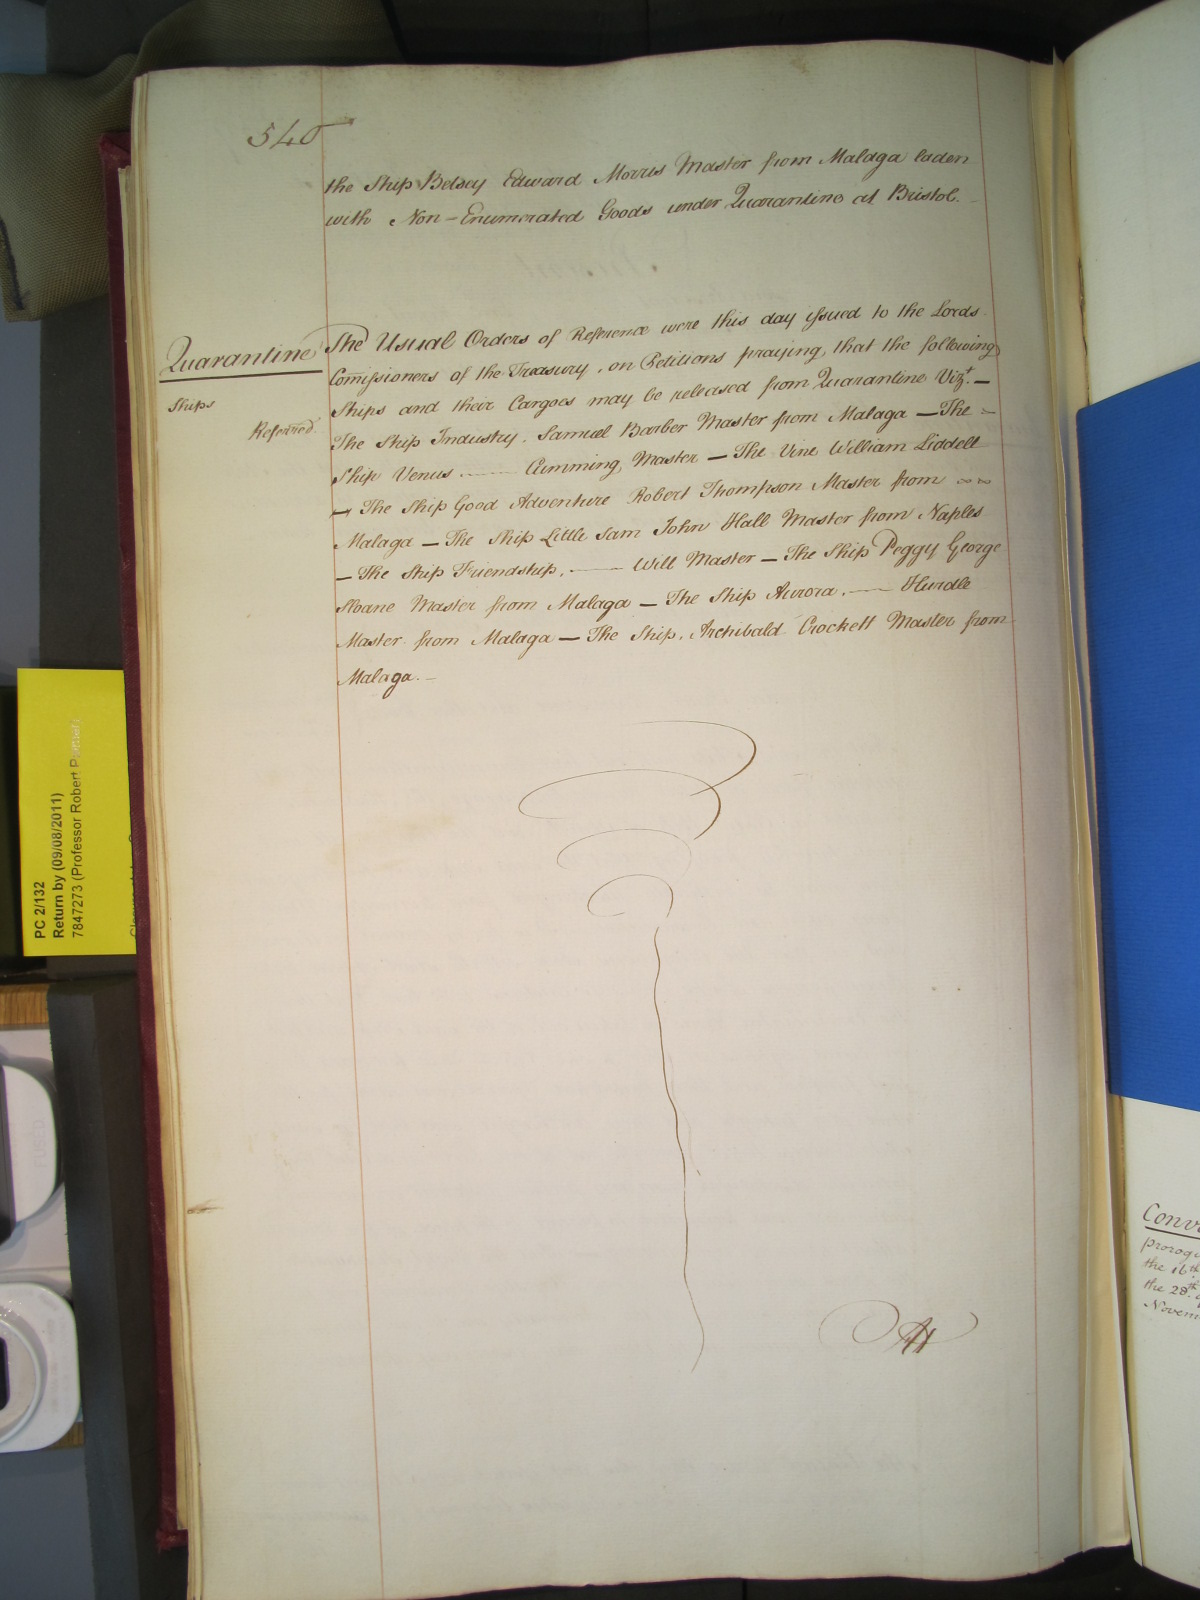 540
the Ship Betsey Edward Morris Master from Malaga laden
with Non-Enumerated Goods under Quarantine at Bristol.
Quarantine
Ships
Referred.
The Usual Orders of Reference were this day issued to the Lords
Comissioners of the Treasury, on Petitions praying, that the following
Ships and their Cargoes may be released from Quarantine Vizt. —
The Ship Industry, Samuel Barber Master from Malaga — The
Ship Venus —— Cumming, Master — The Vine William Liddell
— The Ship Good Adventure Robert Thompson Master from
Malaga — The Ship Little Sam John Hall Master from Naples
— The Ship Friendship, —— Will Master — The Ship Peggy George
Sloane Master from Malaga — The Ship Aurora, —— Hurdle
Master from Malaga — The Ship, Archibald Crockett Master from
Malaga. —
PC 2/132
Return by (09/08/2011)
7847273 (Professor Robert
Conv
prorogu
the 16th
the 28th
Novem